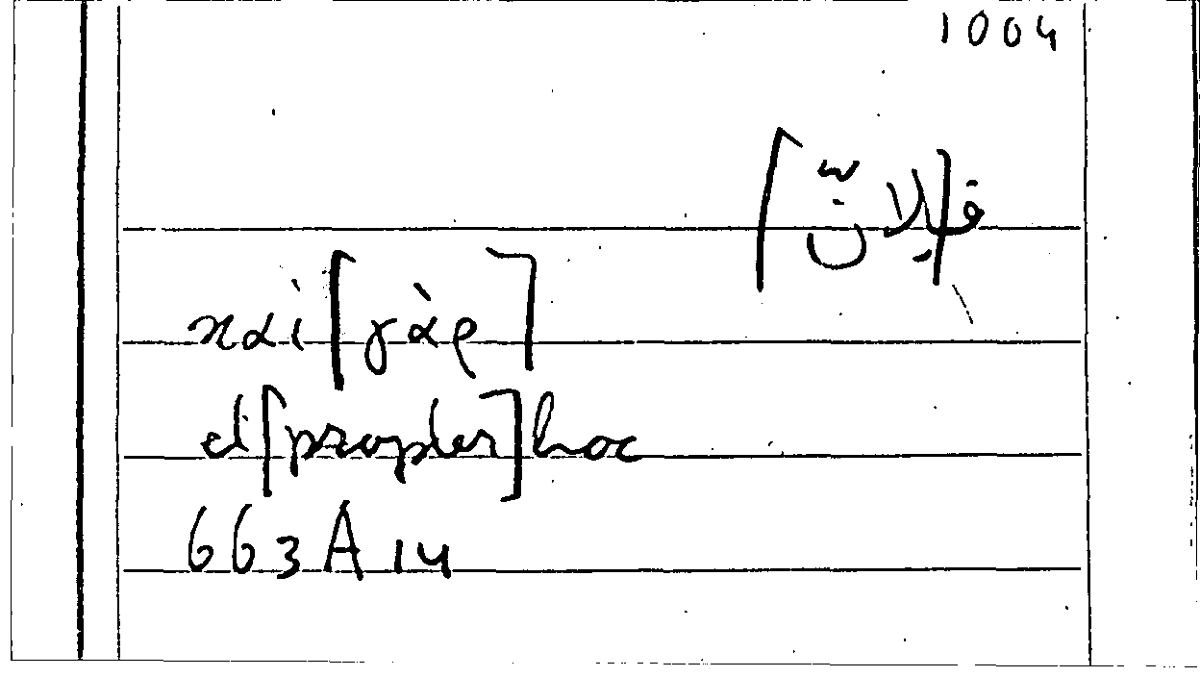 1004
καὶ [γὰρ]
et [propter] hoc
663 A 14